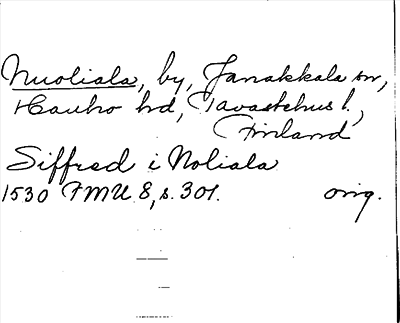 Nuoliala, by, Janakkala sn,
Hauho hd, Tavastehus l.,
Finland
Siffred i Noliala
1530 FMU 8, s. 301. orig.